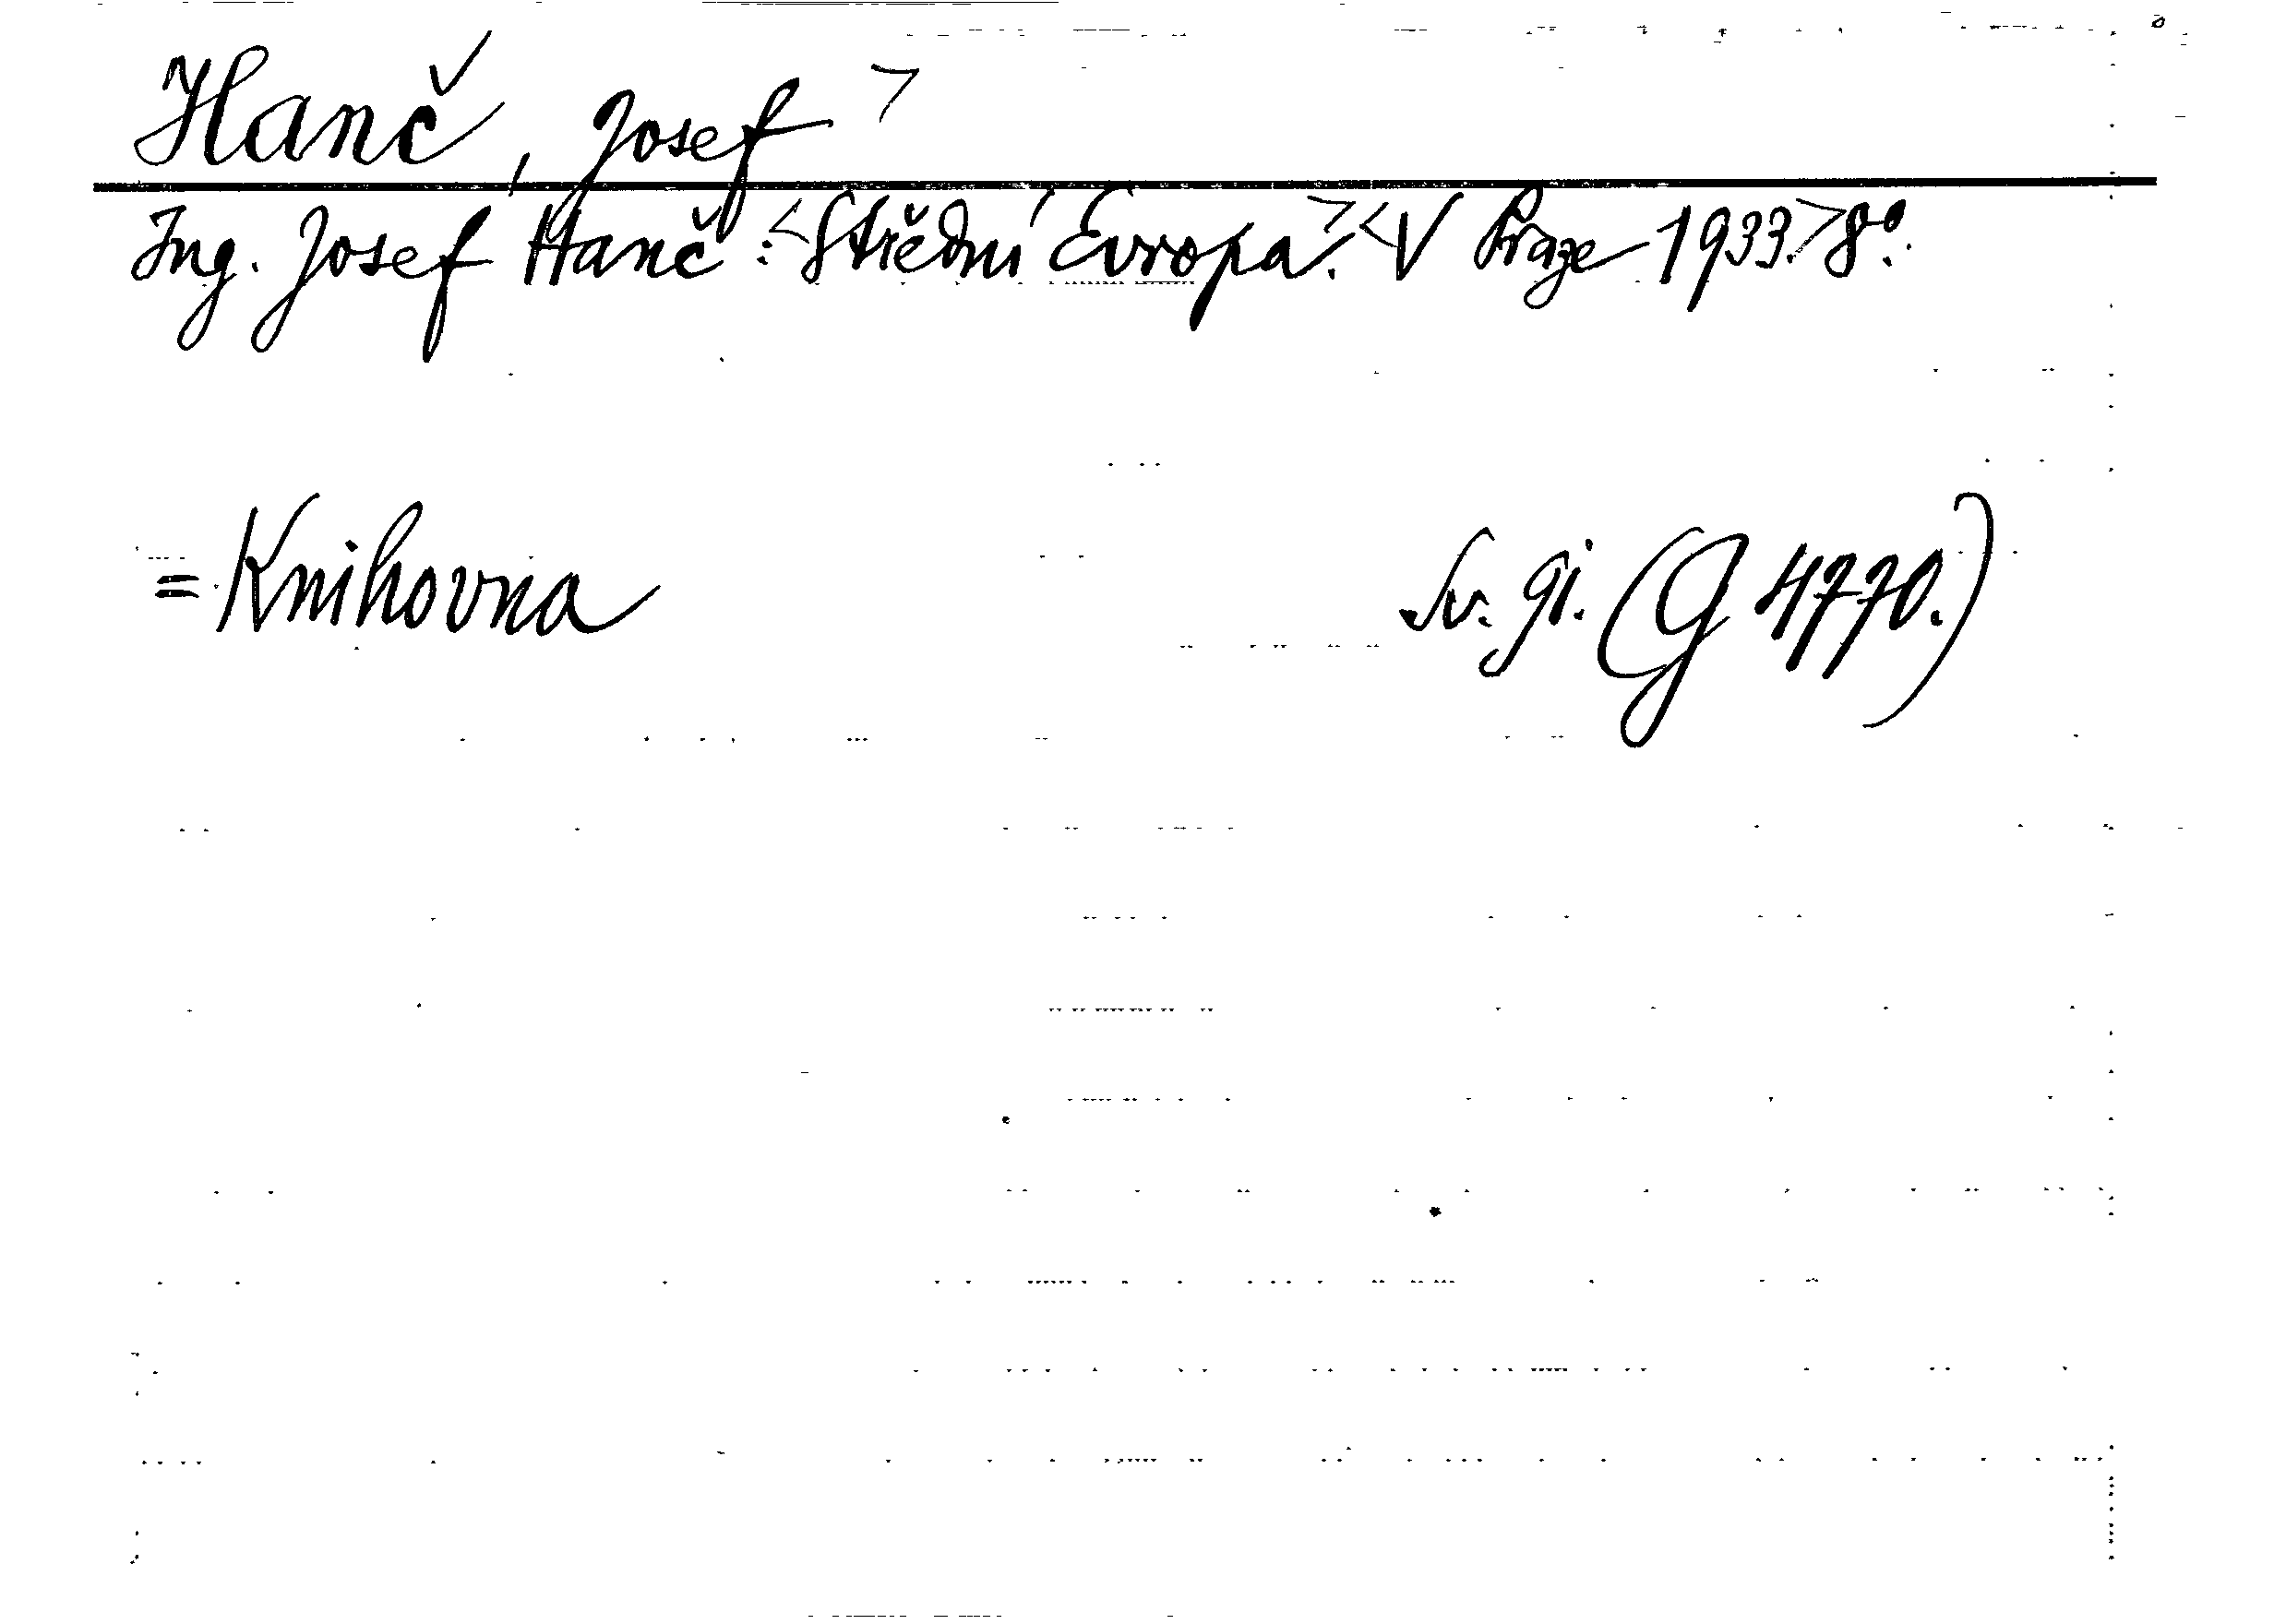 Hanč, Josef >
Ing. Josef Hanč: <Střední Evropa.> <V Praze 1933.> 8°.
= Knihovna Sv. gi. (G 4770.)